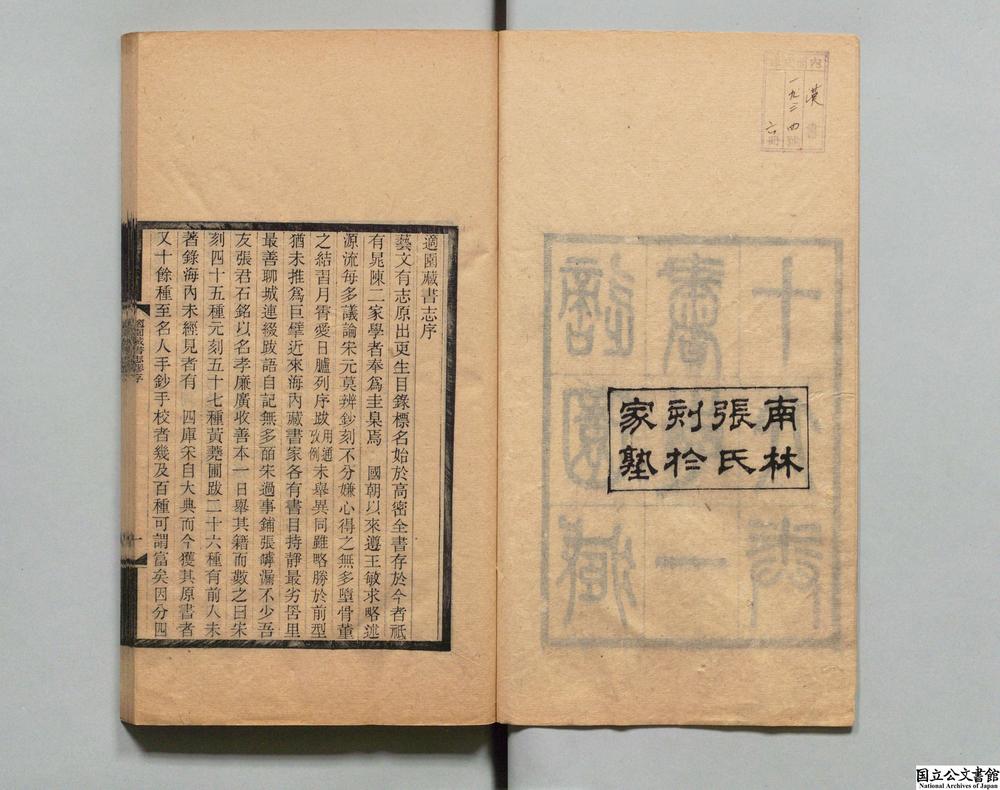 漢書
一九二四號
六冊
南林
張氏
刻於
家塾
適園藏書志序
藝文有志原出更生目錄標名始於高密全書存於今者祇
有晁陳二家學者奉爲圭臬焉　國朝以來遵王敏求略述
源流每多議論宋元莫辨鈔刻不分嫌心得之無多墮骨董
之結習月霄愛日臚列序跋用通攷例未舉異同雖略勝於前型
猶未推爲巨擘近來海內藏書家各有書目持靜最劣罟里
最善聊城連綴跋語自記無多皕宋過事鋪張罅漏不少吾
友張君石銘以名孝廉廣收善本一日舉其籍而數之曰宋
刻四十五種元刻五十七種黃蕘圃跋二十六種有前人未
著錄海內未經見者有　四庫宋自大典而今獲其原書者
又十餘種至名人手鈔手校者幾及百種可謂富矣因分四
適園藏書志序
一
国立公文書館
National Archives of Japan